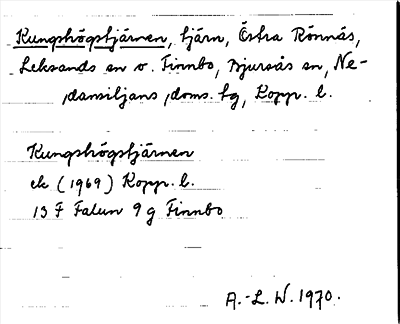 Kungshögstjärnen, tjärn, Östra Rönnås,
Leksands sn o. Finnbo, Bjursås sn, Ne-
dansiljans doms. tg, Kopp. l.
Kungshögstjärnen
ek (1969) Kopp. l.
13 F Falun 9 g Finnbo
A.-L. W. 1970.